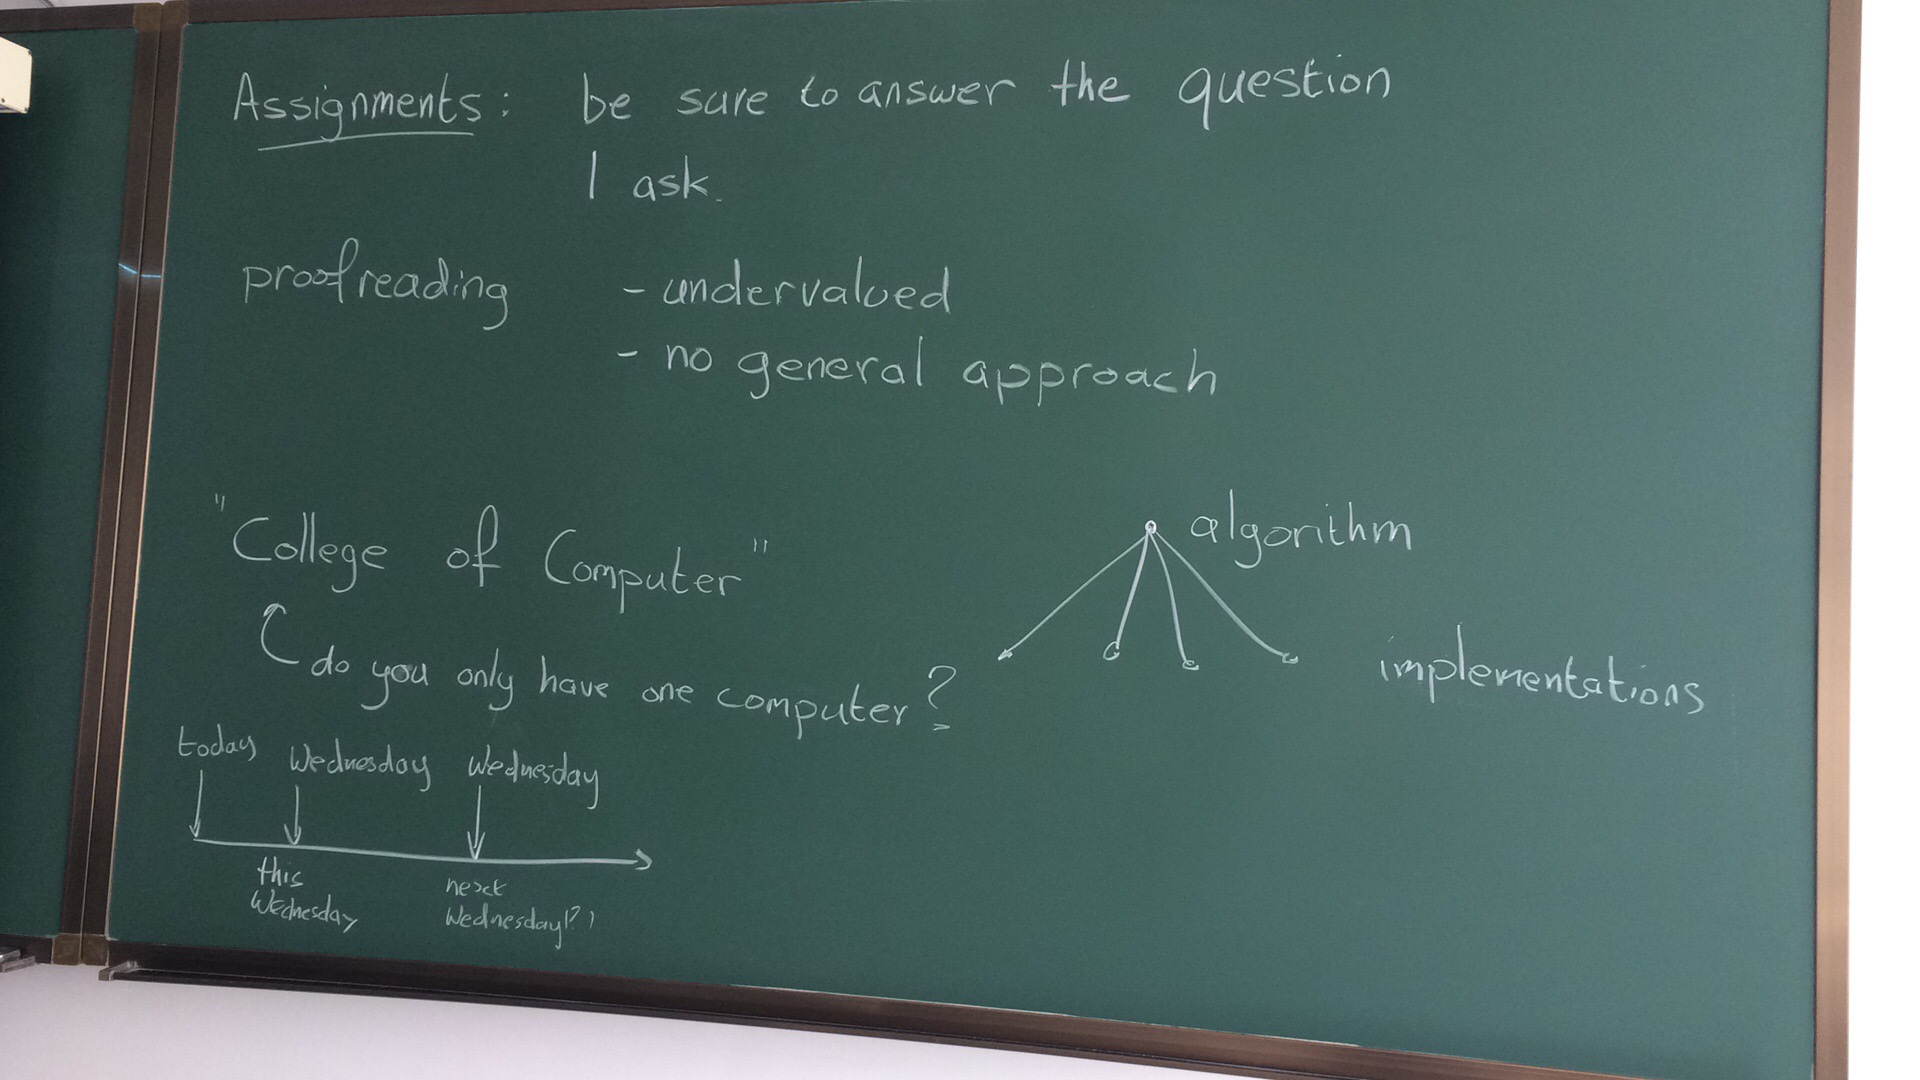 Assignments: be sure to answer the question
I ask.
proofreading - undervalued
- no general approach
"College of Computer"
do you only have one computer?
algorithm
implementations
today Wednesday Wednesday
this
Wednesday
next
Wednesday!?!